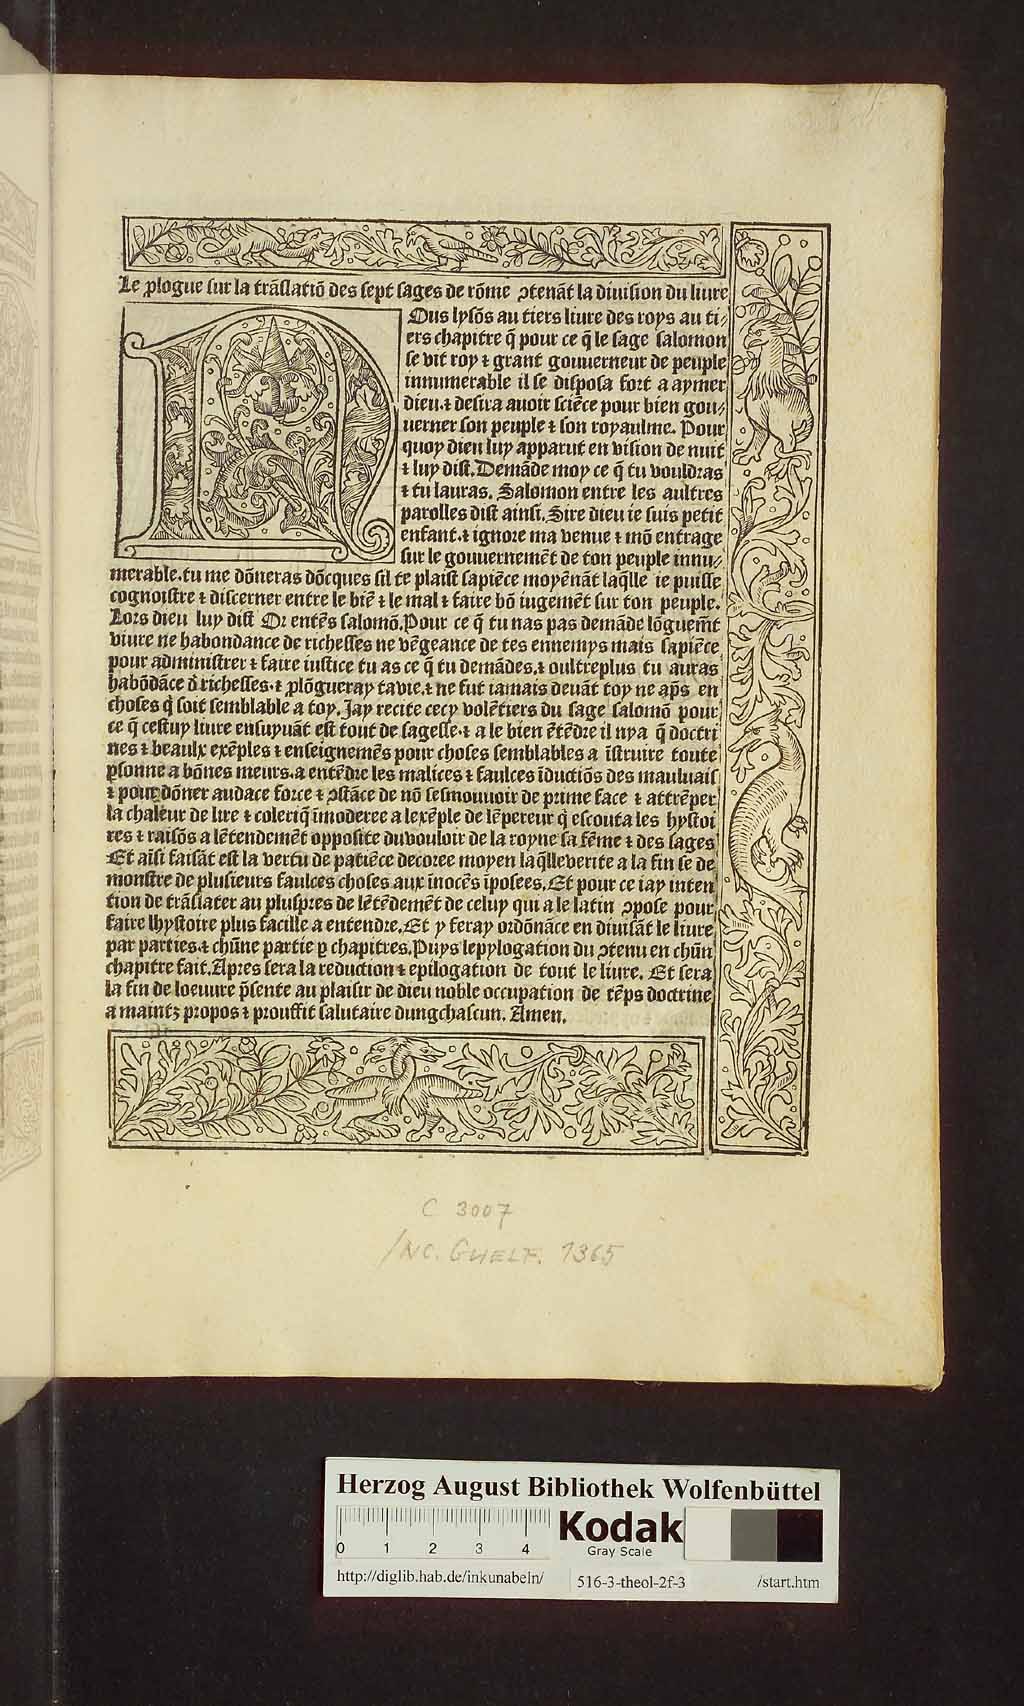 Le ꝓlogue sur la trãslatiõ des sept sages de rõme ↄtenãt la diuision du liure
NOus lysõs au tiers liure des roys au ti⸗
ers chapitre q̃ pour ce q̃ le sage salomon
se vit roy ⁊ grant gouuerneur de peuple
innumerable il se disposa fort a aymer
dieu.⁊ desira auoir sciẽce pour bien gou⸗
uerner son peuple ⁊ son royaulme. Pour
quoy dieu luy apparut en vision de nuit
⁊ luy dist. Demãde moy ce q̃ tu vouldras
⁊ tu lauras. Salomon entre les aultres
parolles dist ainsi. Sire dieu ie suis petit
enfant.⁊ ignore ma venue ⁊ mõ entrage
sur le gouuernemẽt de ton peuple innu⸗
merable.tu me dõneras dõcques sil te plaist sapiẽce moyẽnãt laq̃lle ie puisse
cognoistre ⁊ discerner entre le biẽ ⁊ le mal ⁊ faire bõ iugemẽt sur ton peuple.
Lors dieu luy dist Or entẽs salomõ.Pour ce q̃ tu nas pas demãde lõguemẽt
viure ne habondance de richesses ne vẽgeance de tes ennemys mais sapiẽce
pour administrer ⁊ faire iustice tu as ce q̃ tu demãdes.⁊ oultreplus tu auras
habõdãce d̃ richesses.⁊ ꝓlõgueray ta vie.⁊ ne fut iamais deuãt toy ne ap̃s en
choses q̃ soit semblable a toy. Jay recite cecy volẽtiers du sage salomõ pour
ce q̃ cestuy liure ensuyuãt est tout de sagesse.⁊ a le bien ẽtẽdre il nya q̃ doctri
nes ⁊ beaulx exẽples ⁊ enseignemẽs pour choses semblables a ĩstruire toute
ꝑsonne a bõnes meurs.a entẽdre les malices ⁊ faulces ĩductiõs des mauluais
⁊ pour dõner audace force ⁊ ↄstãce de nõ sesmouuoir de prime face ⁊ attrẽper
la chaleur de lire ⁊ coleriq̃ ĩmoderee a lexẽple de lẽpereur q̃ escouta les hystoi
res ⁊ raisõs a lẽtendemẽt opposite duvouloir de la royne sa fẽme ⁊ des sages
Et aĩsi faisãt est la vertu de patiẽce decoree moyen laq̃lleverite a la fin se de
monstre de plusieurs faulces choses aux ĩnocẽs ĩposees. Et pour ce iay inten
tion de trãslater au pluspres de lẽtẽdemẽt de celuy qui a le latin ↄpose pour
faire lhystoire plus facille a entendre. Et y feray ordõnãce en diuisãt le liure
par parties.⁊ chũne partie ꝑ chapitres. Puys lepylogation du ↄtenu en chũn
chapitre fait. Apres sera la reduction ⁊ epilogation de tout le liure. Et sera
la fin de loeuure p̃sente au plaisir de dieu noble occupation de tẽps doctrine
a maintz propos ⁊ prouffit salutaire dungchascun. Amen.
C 3007
INC. GUELF. 1365
Herzog August Bibliothek Wolfenbüttel
0 1 2 3 4
Kodak
Gray Scale
http://diglib.hab.de/inkunabeln/ 516-3-theol-2f-3 /start.htm